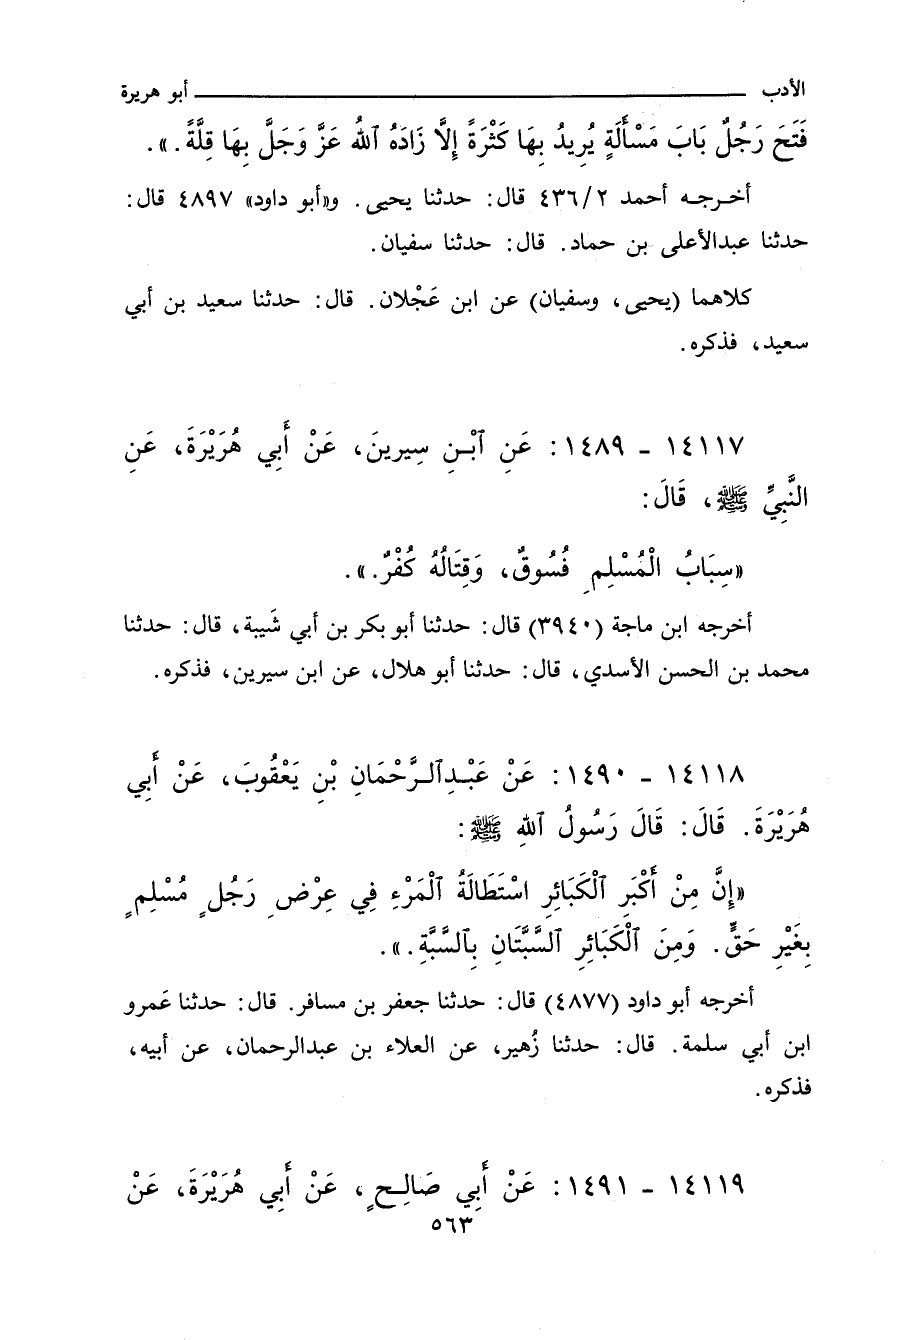 الأدب ـــــــ أبو هريرة
فَتَحَ رَجُلٌ بَابَ مَسْأَلَةٍ يُرِيدُ بِهَا كَثْرَةً إِلَّا زَادَهُ ٱللهُ عَزَّ وَجَلَّ بِهَا قِلَّةً.».
أخرجه أحمد ٤٣٦/٢ قال: حدثنا يحيى. و«أبو داود» ٤٨٩٧ قال:
حدثنا عبدالأعلى بن حماد. قال: حدثنا سفيان.
كلاهما (يحيى، وسفيان) عن ابن عَجْلان. قال: حدثنا سعيد بن أبي
سعيد، فذكره.
١٤١١٧ - ١٤٨٩: عَنِ ٱبْنِ سِيرِينَ، عَنْ أَبِي هُرَيْرَةَ، عَنِ
النَّبِيِّ ﷺ، قَالَ:
«سِبَابُ الْمُسْلِمِ فُسُوقٌ، وَقِتَالُهُ كُفْرٌ.».
أخرجه ابن ماجة (٣٩٤٠) قال: حدثنا أبو بكر بن أبي شَيبة، قال: حدثنا
محمد بن الحسن الأسدي، قال: حدثنا أبو هلال، عن ابن سيرين، فذكره.
١٤١١٨ - ١٤٩٠: عَنْ عَبْدِٱلرَّحْمَانِ بْنِ يَعْقُوبَ، عَنْ أَبِي
هُرَيْرَةَ. قَالَ: قَالَ رَسُولُ ٱللهِ ﷺ:
«إِنَّ مِنْ أَكْبَرِ ٱلْكَبَائِرِ اسْتَطَالَةُ ٱلْمَرْءِ فِي عِرْضِ رَجُلٍ مُسْلِمٍ
بِغَيْرِ حَقٍّ. وَمِنَ ٱلْكَبَائِرِ ٱلسَّبَّتَانِ بِٱلسَّبَّةِ.».
أخرجه أبو داود (٤٨٧٧) قال: حدثنا جعفر بن مسافر. قال: حدثنا عَمرو
ابن أبي سلمة. قال: حدثنا زُهير، عن العلاء بن عبدالرحمان، عن أبيه،
فذكره.
١٤١١٩ - ١٤٩١: عَنْ أَبِي صَالِحٍ، عَنْ أَبِي هُرَيْرَةَ، عَنْ
٥٦٣